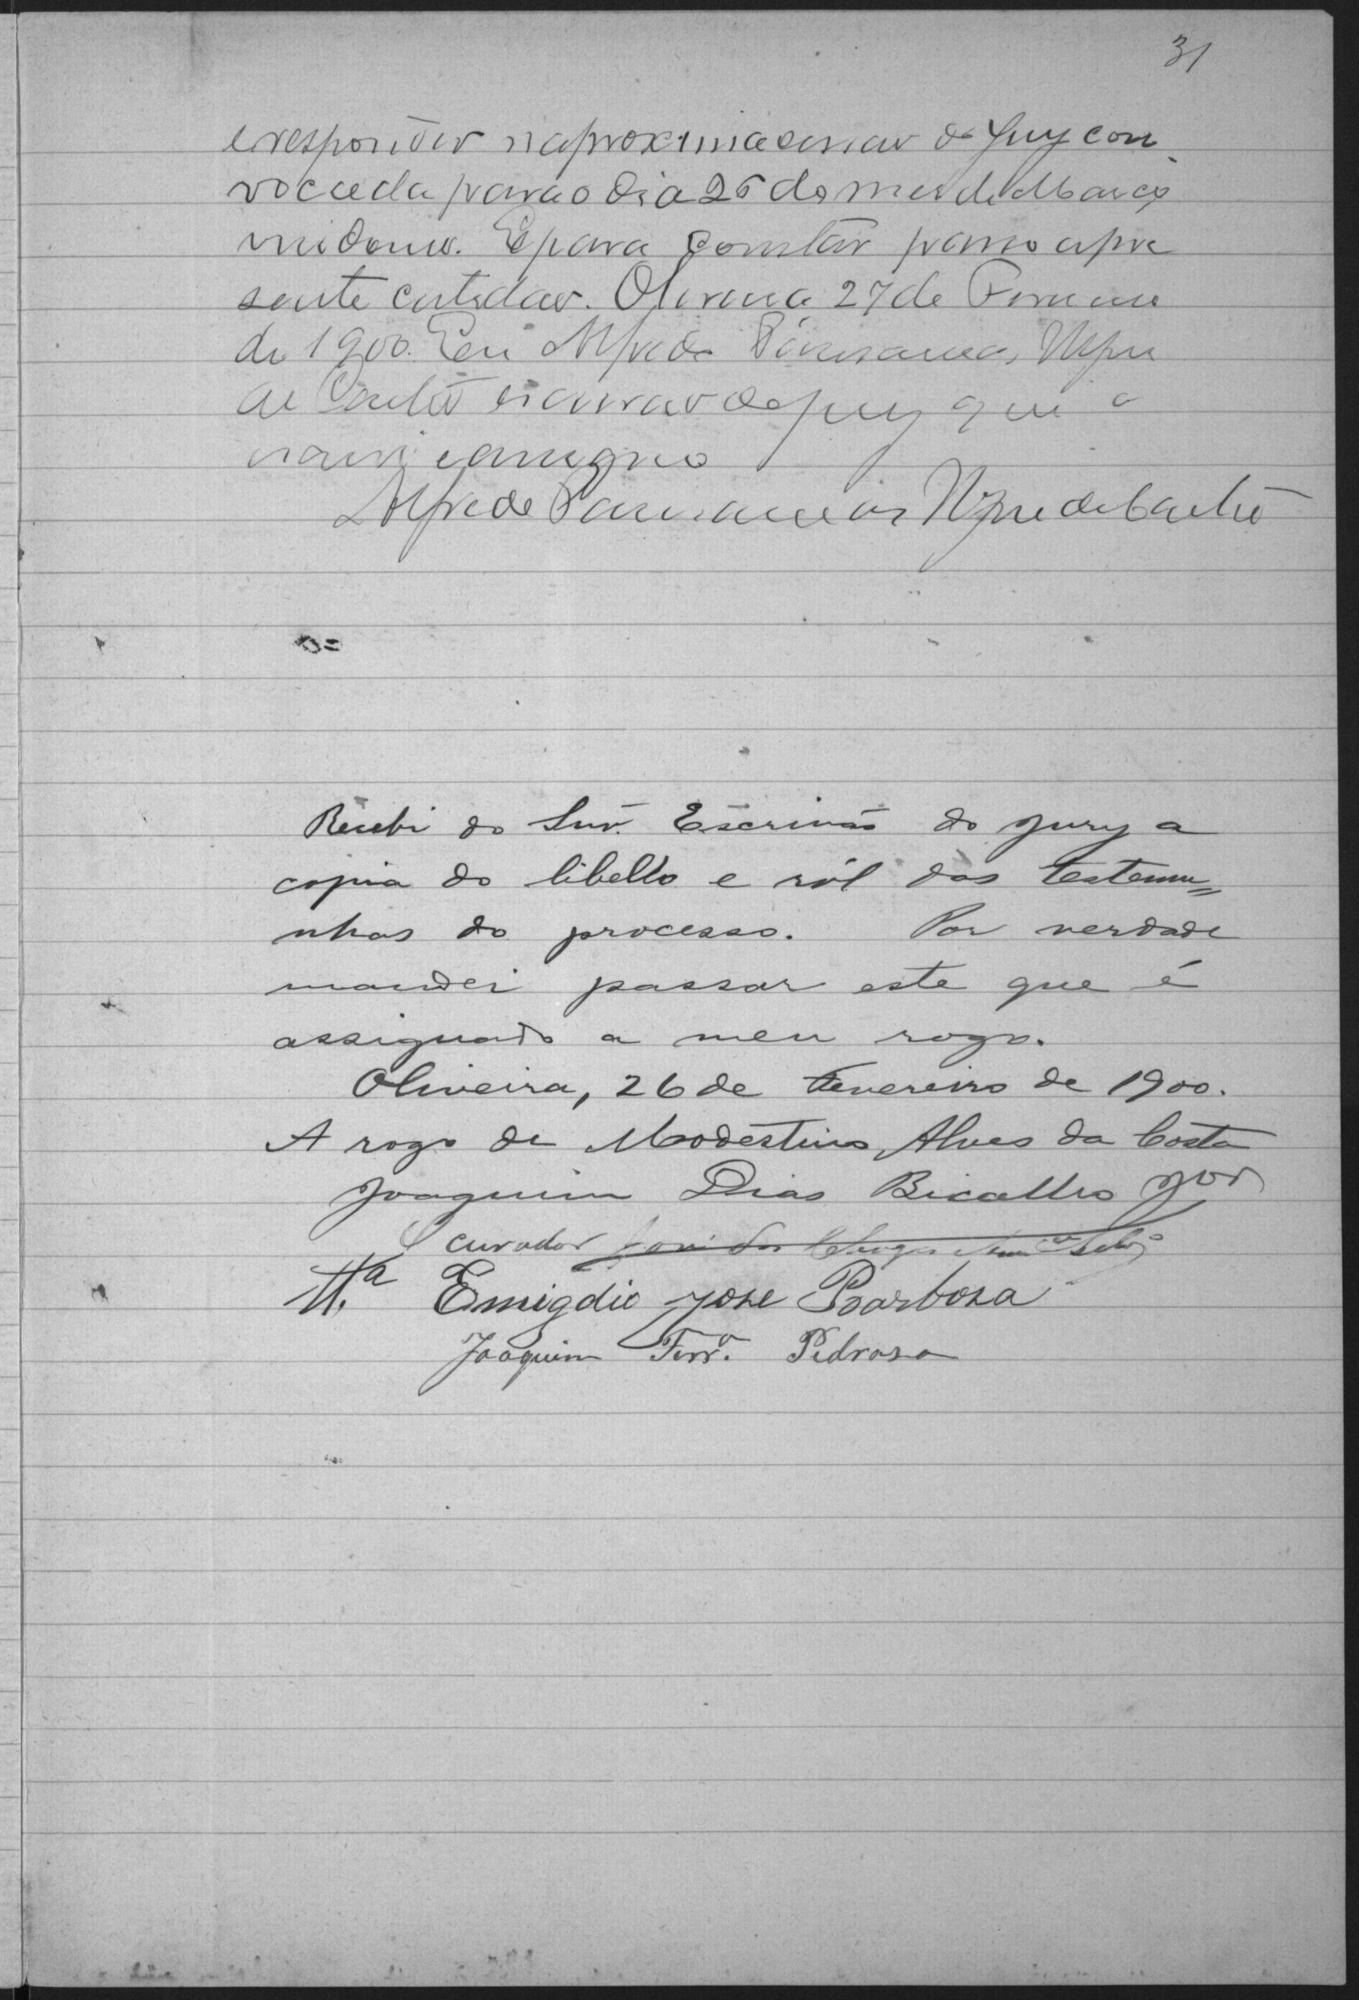 31
e responder na proxima sessão do Jury con
vocada para o dia 26 do mes de Março
vindouro. E para constar passo a pre
sente certidão. Oliveira 27 de Fevereiro
de 1900. Eu Alfredo
de Castro escrivão do jury que o
escrevi e assigno
Alfredo de Castro
Recebi do Snr. Escrivão do jury a
copia do libello e ról das testemu=
nhas do processo. Por verdade
mandei passar este que é
assignado a meu rogo.
Oliveira, 26 de Fevereiro de 1900.
A rogo de Modestino Alves da Costa
Joaquim Dias Bicalho por
curador
Tt.ª Emigdio Jose Barbosa
Joaquim Ferr.ª Pedrosa